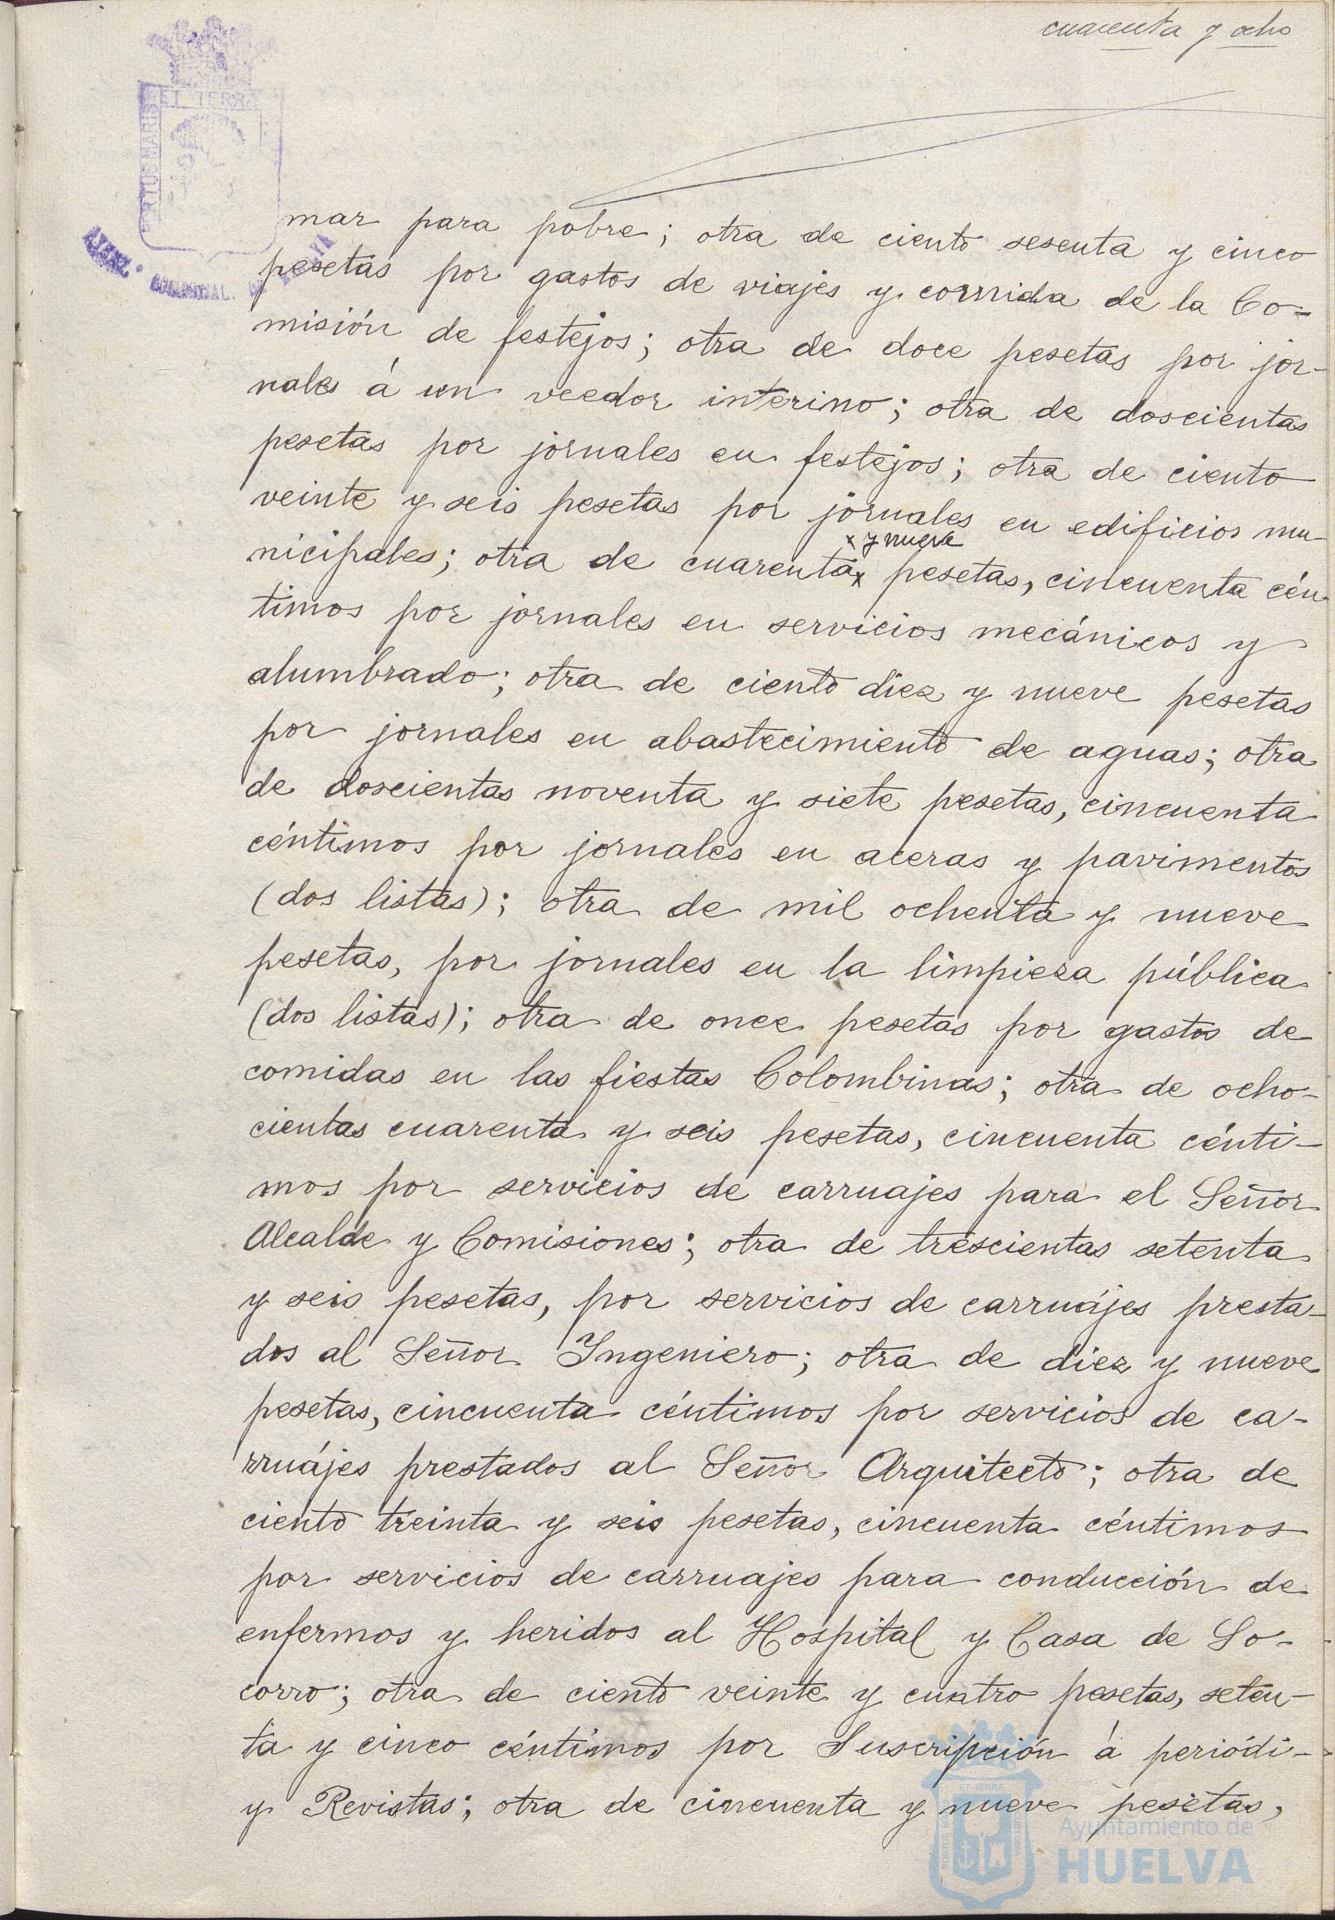 cuarenta y ocho
ET TERRÆ
PORTUS MARIS
mar para pobre; otra de ciento sesenta y cinco
pesetas por gastos de viajes y comida de la Co=
misión de festejos; otra de doce pesetas por jor-
nales á un veedor interino; otra de doscientas
pesetas por jornales en festejos; otra de ciento
veinte y seis pesetas por jornales en edificios mu-
x y nueve
nicipales; otra de cuarenta x pesetas, cincuenta cén-
timos por jornales en servicios mecánicos y
alumbrado; otra de ciento diez y nueve pesetas
por jornales en abastecimiento de aguas; otra
de doscientas noventa y siete pesetas, cincuenta
céntimos por jornales en aceras y pavimentos
(dos listas); otra de mil ochenta y nueve
pesetas, por jornales en la limpieza pública
(dos listas); otra de once pesetas por gastos de
comidas en las fiestas Colombinas; otra de ocho-
cientas cuarenta y seis pesetas, cincuenta cénti-
mos por servicios de carruajes para el Señor
Alcalde y Comisiones; otra de trescientas setenta
y seis pesetas, por servicios de carruájes presta-
dos al Señor Ingeniero; otra de diez y nueve
pesetas, cincuenta céntimos por servicios de ca-
rruájes prestados al Señor Arquitecto; otra de
ciento treinta y seis pesetas, cincuenta céntimos
por servicios de carruajes para conducción de
enfermos y heridos al Hospital y Casa de So-
corro; otra de ciento veinte y cuatro pesetas, seten-
ta y cinco céntimos por Suscripción á periódi-
y Revistas; otra de cincuenta y nueve pesetas,
Ayuntamiento de
HUELVA